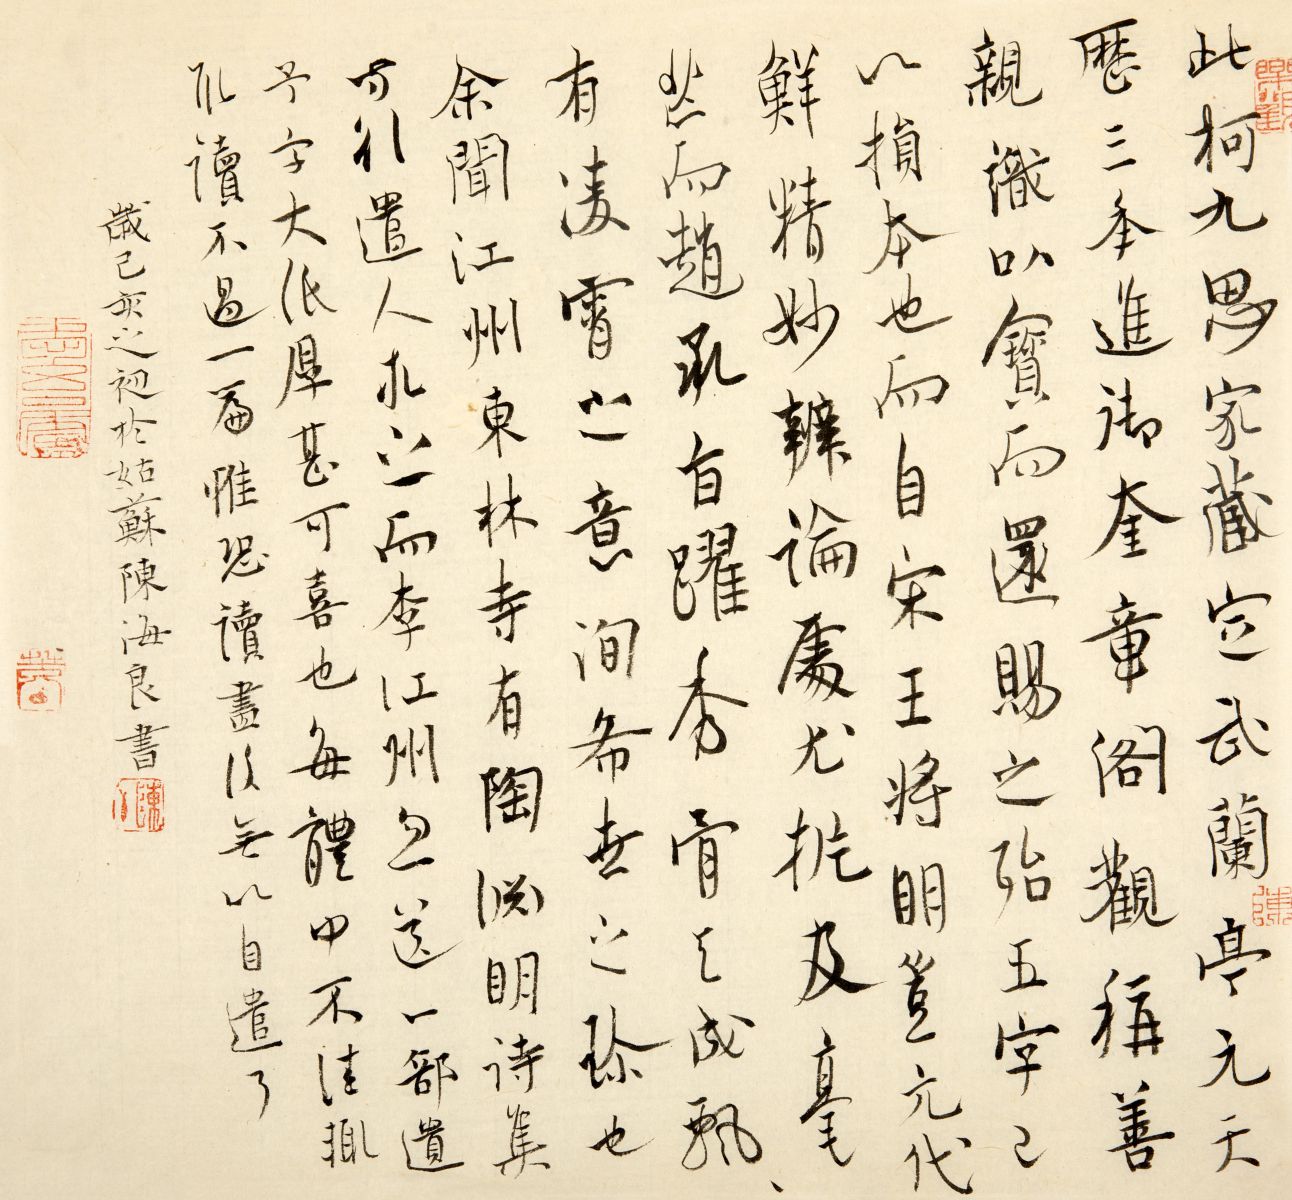 此柯九思家藏定武蘭亭元天
歷三年進御奎章閣觀稱善
親識以寶而還賜之殆五字已
以損本也而自宋王將明豈元代
鮮精妙辨論處尤批及毫
芒而趙承旨躍秀骨天成飄
有凌霄之意洵希世之珍也
余聞江州東林寺有陶淵明詩集
方欲遣人求之而李江州忽送一部遺
予字大紙厚甚可喜也每體中不佳輒
取讀不過一篇惟恐讀盡後無以自遣了
歲己亥之初於姑蘇陳海良書